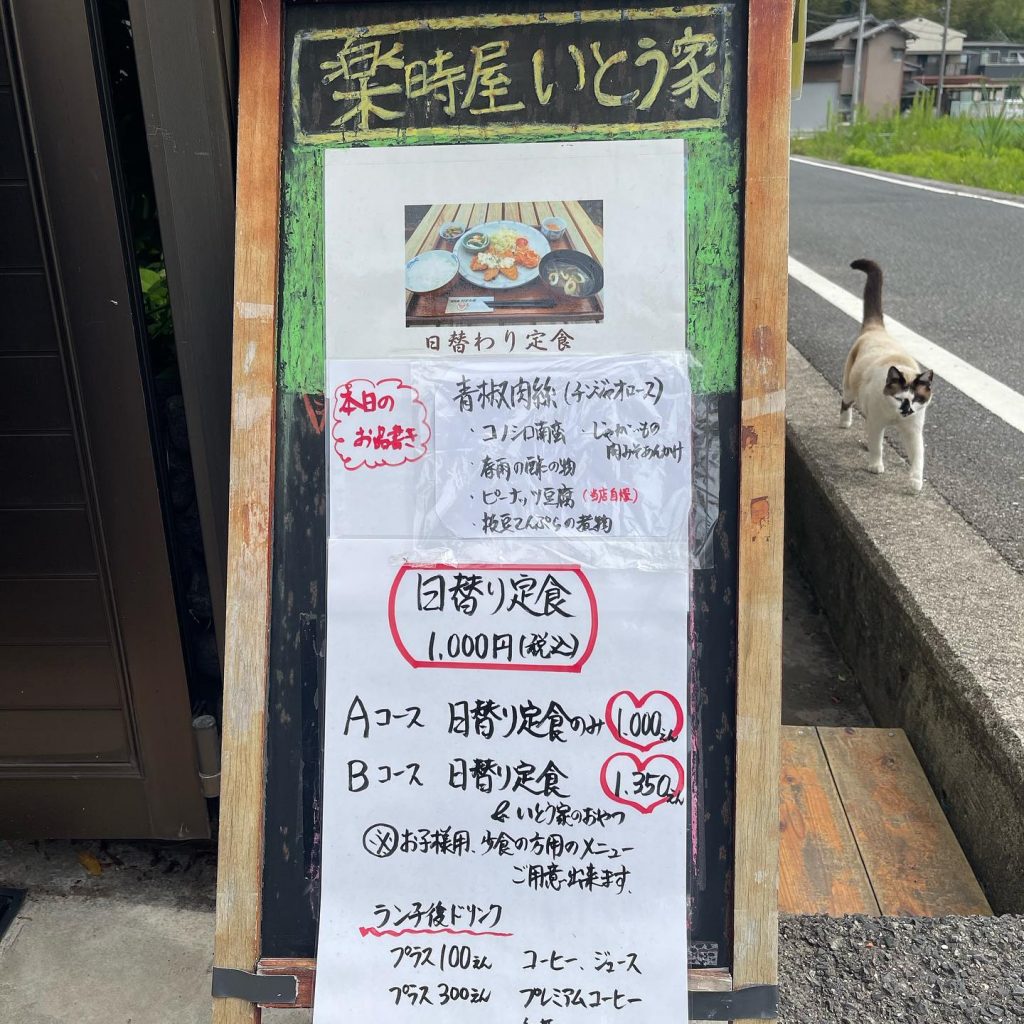 楽時屋いとう家
日替わり定食
本日の
お品書き
青椒肉絲(チンジャオロース)
・コノシロ南蛮 ・じゃがいもの
肉みそあんかけ
・春雨の酢の物
・ピーナッツ豆腐(当店自慢)
・枝豆てんぷらの煮物
日替り定食
1,000円(税込)
Aコース 日替り定食のみ 1.000えん
Bコース 日替り定食 1.350えん
& いとう家のおやつ
※お子様用、少食の方用のメニュー
ご用意出来ます。
ランチ後ドリンク
プラス100えん コーヒー、ジュース
プラス300えん プレミアムコーヒー